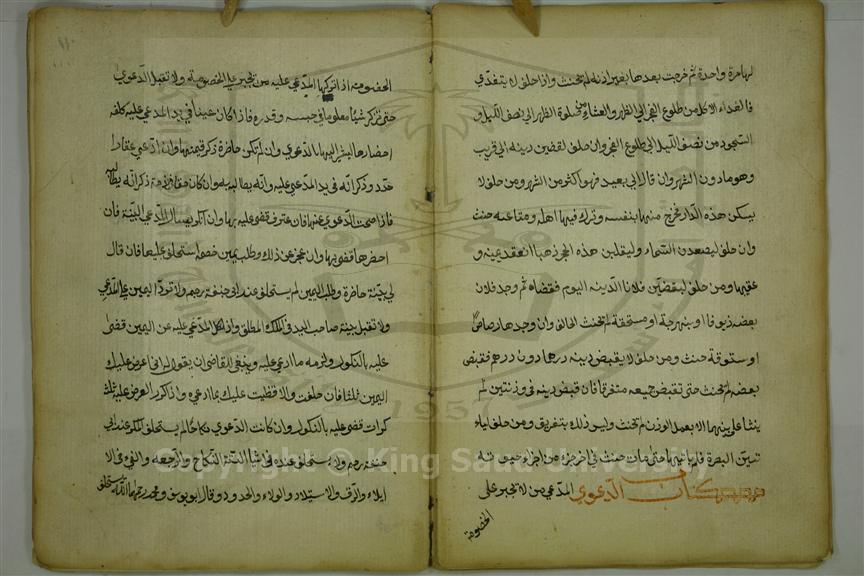 لها مرة واحدة ثم خرجت بعدها بغير اذنه لم يحنث واذا حلف لا يتغدي
فالغداء الاكل من طلوع الفجر الى الظهر والعشاء من صلوة الظهر الى نصف الليل و
السحور من نصف الليل الى طلوع الفجر وان حلف لقضين دينه الى قريب
وهو ما دون الشهر وان قال الى بعيد فهو اكثر من الشهر ومن حلف لا
يسكن هذه الدار فخرج منها بنفسه وترك فيها اهله ومتاعه حنث
وان حلف ليصعدن السماء وليقلبن هذه الحجر ذهبا انعقد يمينه و
عقبها ومن حلف ليقضين فلانا الدينه اليوم فقضاه ثم وجد فلان
بعضه زيوفا او بنهرجة او مستحقة لم يحنث الحالف وان وجدها رصاصا
او ستوقة حنث ومن حلف لا يقبض دينه درهما دون درهم فقبض
بعضه لم يحنث حتى تقبض جميعه متفرقا فان قبض دينه في وزنتين لم
يتشاغل بينهما الا بعمل الوزن لم يحنث وليس ذلك بتفريق ومن حلف لياء
تين البصرة فلم ياتيها حتى مات حنث في اخر جزء من اجزاء حيوته
كتاب الدعوي المدعي من لا يجبر على
الخصومة
الخصومه اذا تركها المدعي عليه من يجبر على الخصومة ولا تقبل الدعوي
حتى تذكر شيئا معلوما في جنسه وقدره فاذا كان عينا في يد المدعي عليه كلفه
احضارها ليشر اليها بالدعوي وان لم تكن حاضرة ذكر قيمتها وان ادعي عقارا
حدد وذكر انه في يد المدعي عليه وانه يطالبه به وان كان حقا في ذمة ذكر انه يطالبه
فاذا صحت الدعوي عنها فان عترف قضى عليه بها وان انكر يسال المدعي البينة فان
احضرها قضى بها وان عجز عن ذلك وطلب يمين خصمه استحلف عليها فان قال
لي بينة حاضرة وطلب اليمين لم يستحلف عند ابى حنيفة رحمه ولا تردّ اليمين على المدعي
ولا تقبل بينة صاحب اليد في الملك المطلق واذا نكل المدعي عليه عن اليمين قضى
عليه بالنكول ولزمه ما ادعي عليه وينبغى للقاضى ان يقول له انى اعرض عليك
اليمين ثلثا فان حلفت والا قظيت عليك بما ادعي واذا كرر العرض عليه ثلث
كرات قضى عليه بالنكول وان كانت الدعوي نكاحا لم يستحلف المنكر عند ابى
حنيفة رحمه ولا يستحلف عنده فى اشيا الستة النكاح والرجعه والفي في الا
يلاء والرق والاستيلاد والولاء والحدود وقال ابو يوسف ومحمد رحمهما الله يستحلف
Copyright © King Saud University
1957